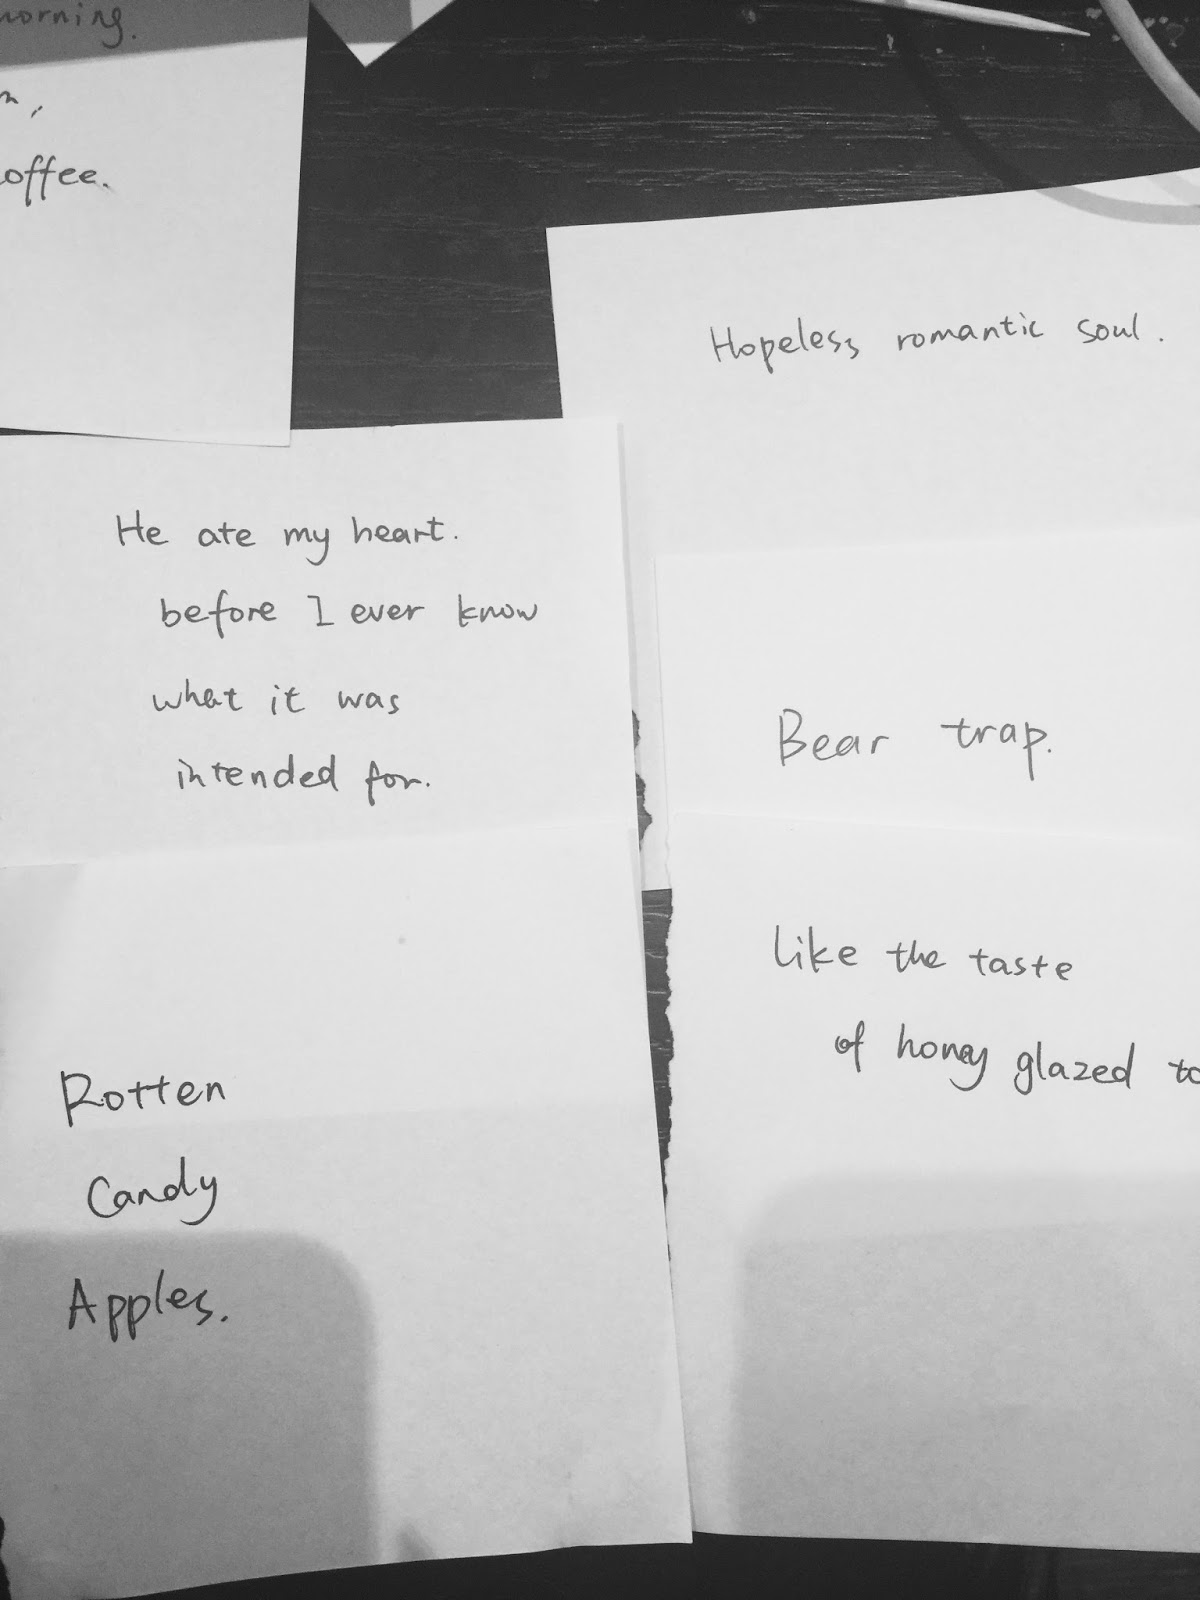 Hopeless romantic soul.
He ate my heart.
before I ever know
what it was
intended for.
Bear trap.
Rotten
Candy
Apples.
Like the taste
of honey glazed